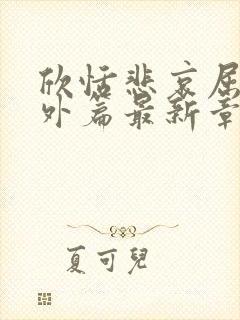 欣恬悲哀屈
外篇最新章
夏可兒